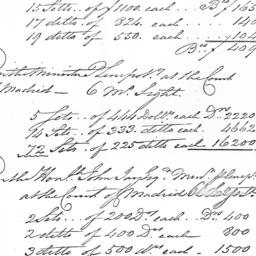 15 Setts.. of f1100. each ... Bf 165
17 ditto of 824. each .. 140
19 ditto of 550. each ... 104
Bco f 409
the Minister Plenipy. at the Court
Madrid — 6 Mos. Sight.
5 Sets.. of 444 dollrs. each Drs 2220
14 Sets.. of 333. ditto each .. 4662
72 Sets of 225 ditto each 16200
the Honble. John Jay Esqr. Minr. Plenipy.
at the Court of Madrid 60 days St.
2 Sets... of 200 Drs each.. Drs. 400
2 ditto of 400 Drs each 800
3 ditto of 500 drs each - 1500